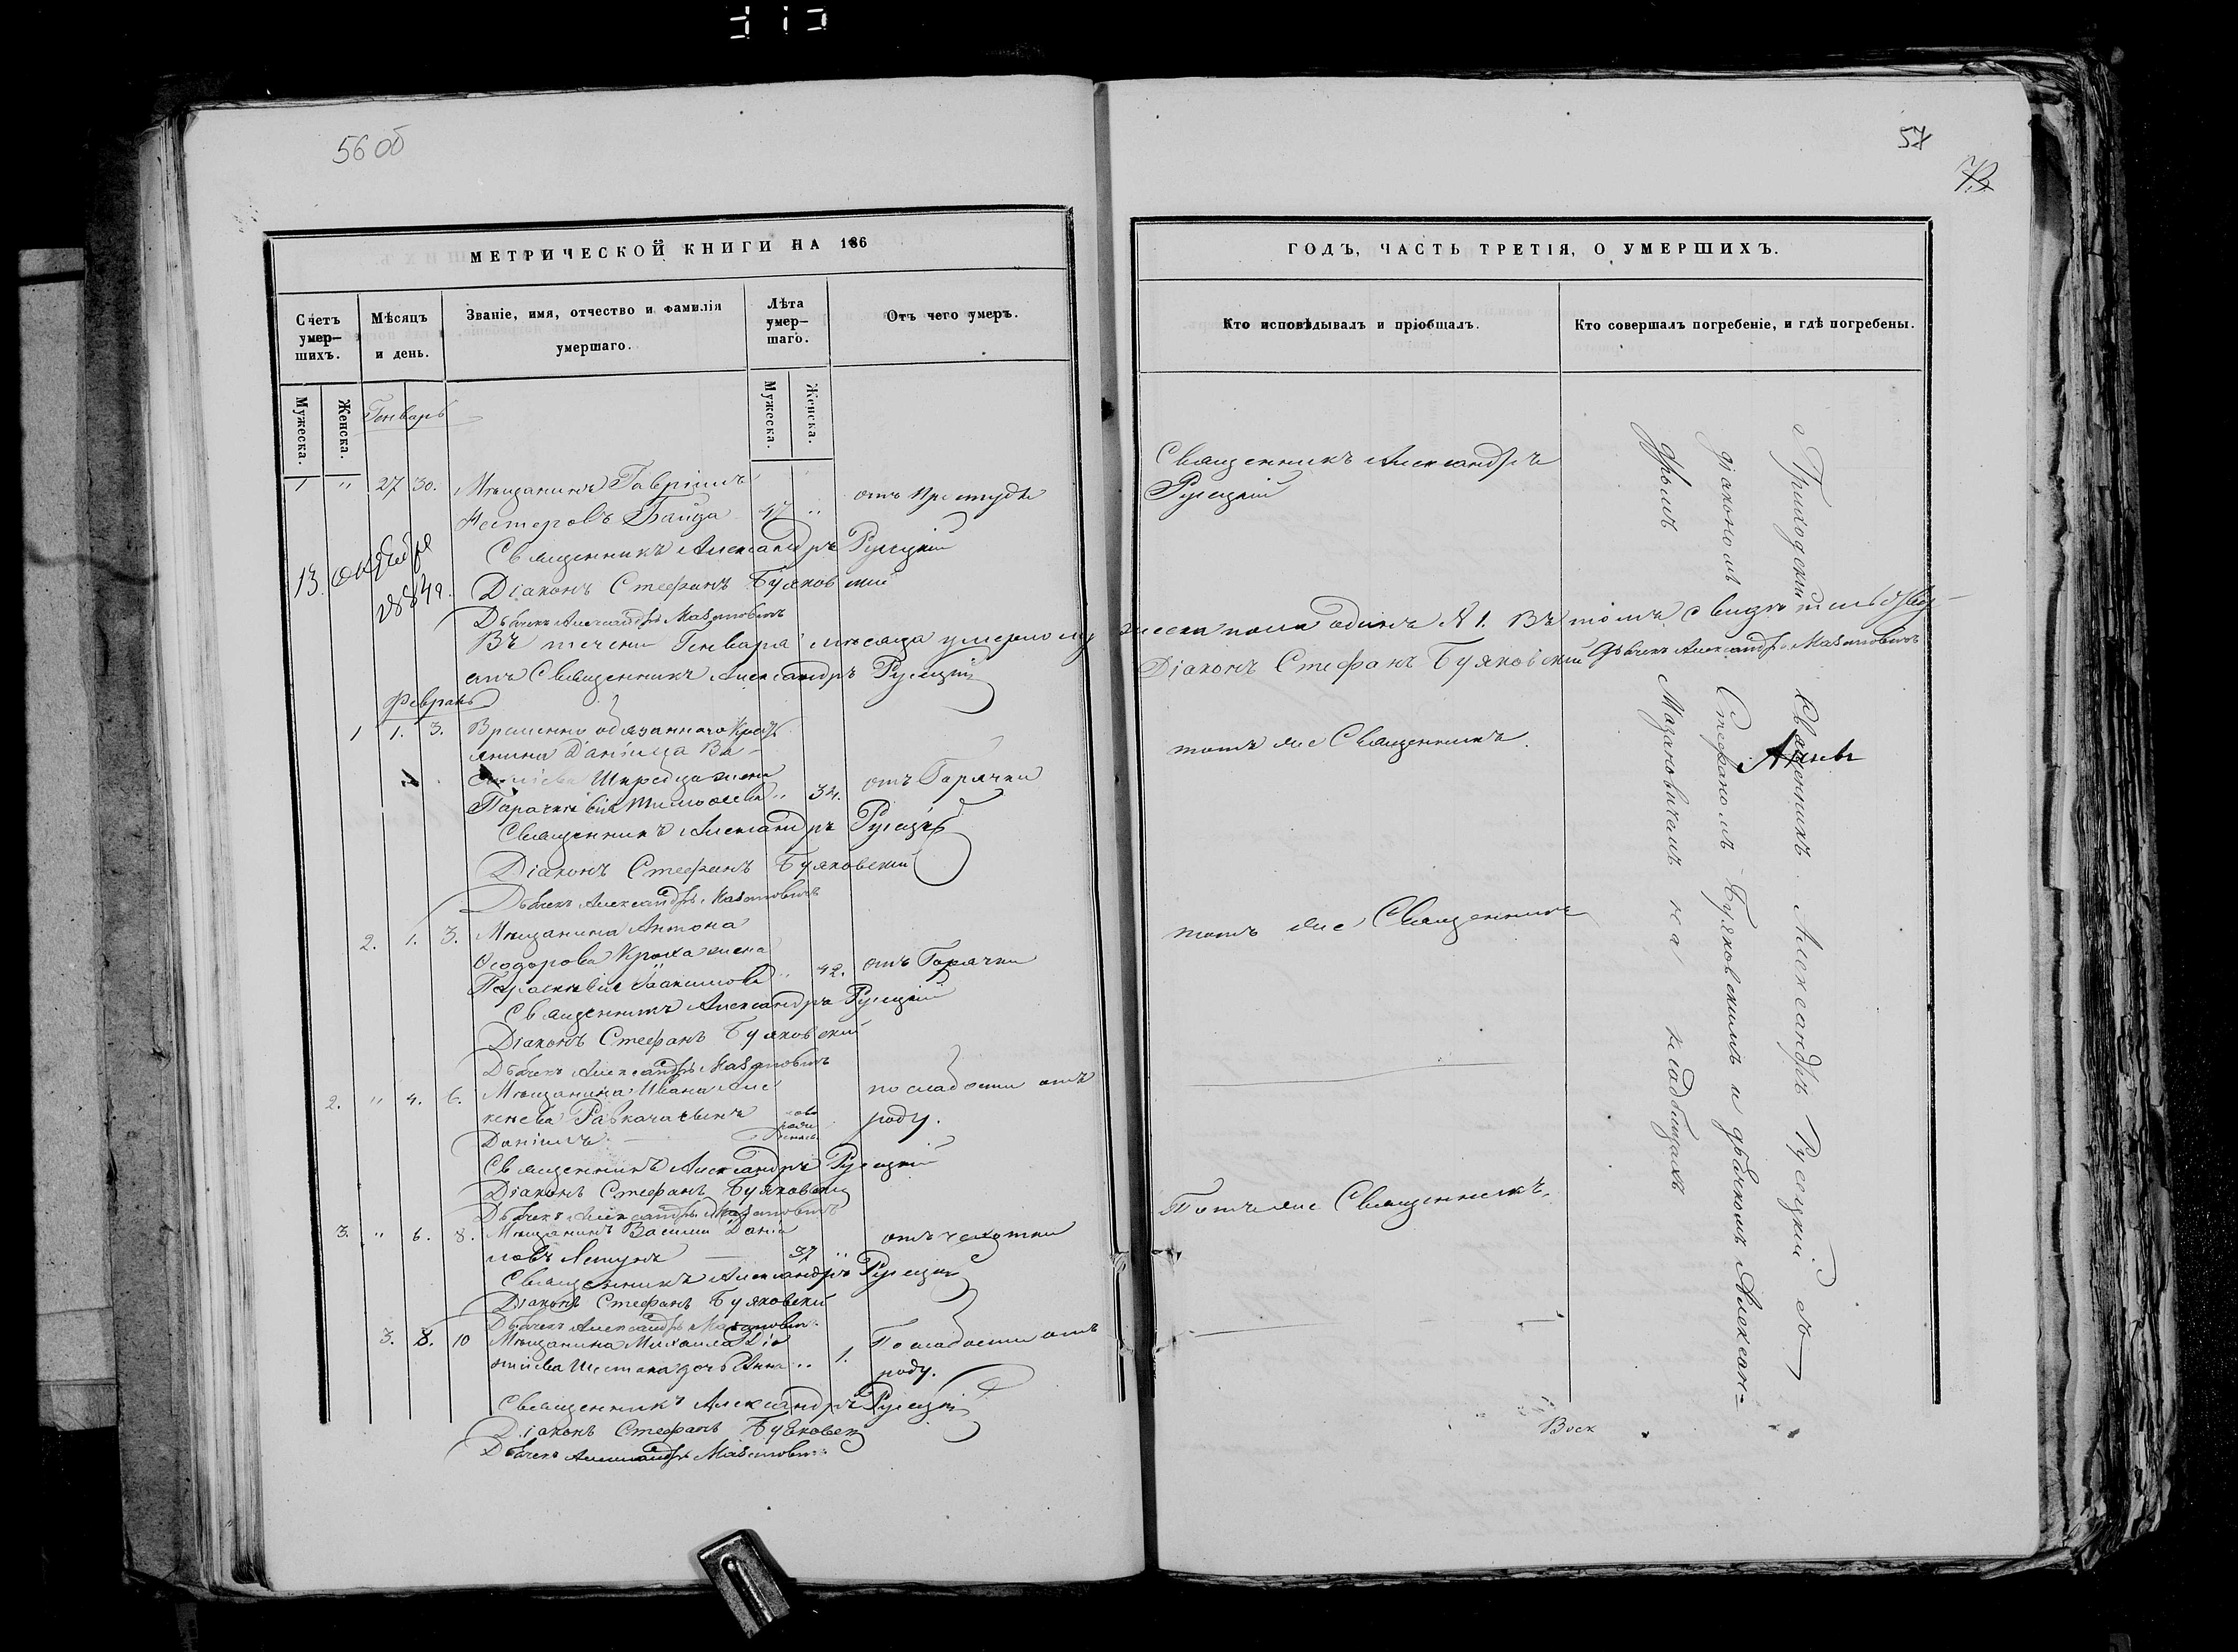 56 об
МЕТРИЧЕСКОЙ КНИГИ НА 186
Счетъ умер-шихъ.
Мѣсяцъ и день.
Званіе, имя, отчество и фамилія умершаго.
Лѣта умер-шаго.
Отъ чего умеръ.
Мужеска.
Женска.
Мужеска.
Женска.
Генварь
1 " 27 30. Мѣщанинъ Гавріилъ
Нестеровъ Байда 47 " отъ простуды
Священникъ Александръ Русецкій
13. октября
1884 г.
Діаконъ Стефанъ Буяковскій
Дьячекъ Александръ Мазановичъ
Въ течени Генваря мѣсяца умершо му
Священникъ Александръ Русецкій
Февраль
1 1. 3. Временно обязаннаго Крест
янина Даніила Ва-
сильева жена
34. отъ Горячки
Священникъ Александръ Русецкій
Діаконъ Стефанъ Буяковскій
Дьячекъ Александръ Мазановичъ
2. 1. 3. Мѣщанина Антона
Ѳеодорова жена
Параскевія " 42. отъ Горячки
Священникъ Александръ Русецкій
Діаконъ Стефанъ Буяковскій
Дьячекъ Александръ Мазановичъ
2. " 4. 6. Мѣщанина Ивана Але
по слабости отъ
роду.
Даніилъ
Священникъ Александръ Русецкій
Діаконъ Стефанъ Буяковскій
Дьячекъ Александръ Мазановичъ
3. " 6. 8. Мѣщанинъ Василій Даніи
ловъ 37 " отъ чахотки
Священникъ Александръ Русецкій
Діаконъ Стефанъ Буяковскій
Дьячекъ Александръ Мазановичъ
3. 8. 10 Мѣщанина Михаила
Шестака дочь Анна " 1. По слабости отъ
роду.
Священникъ Александръ Русецкій
Діаконъ Стефанъ Буяковск
Дьячекъ Александръ Мазанович
57
ГОДЪ, ЧАСТЬ ТРЕТІЯ, О УМЕРШИХЪ.
Кто исповѣдывалъ и пріобщалъ.
Кто совершалъ погребеніе, и гдѣ погребены.
Священникъ Александръ
Русецкій
жеска пола одинъ № 1. Въ томъ свидѣтельству-
Діаконъ Стефанъ Буяковскій Дьячекъ Александръ Мазановичъ
тотъ же Священникъ.
тотъ же Священникъ
Тотъ же Священникъ.
Приходскій Священникъ Александръ Русецкій съ
діакономъ Стефаномъ Буяковскимъ и дьячкомъ Алексан=
дромъ Мазановичемъ на кладбищахъ
Воск